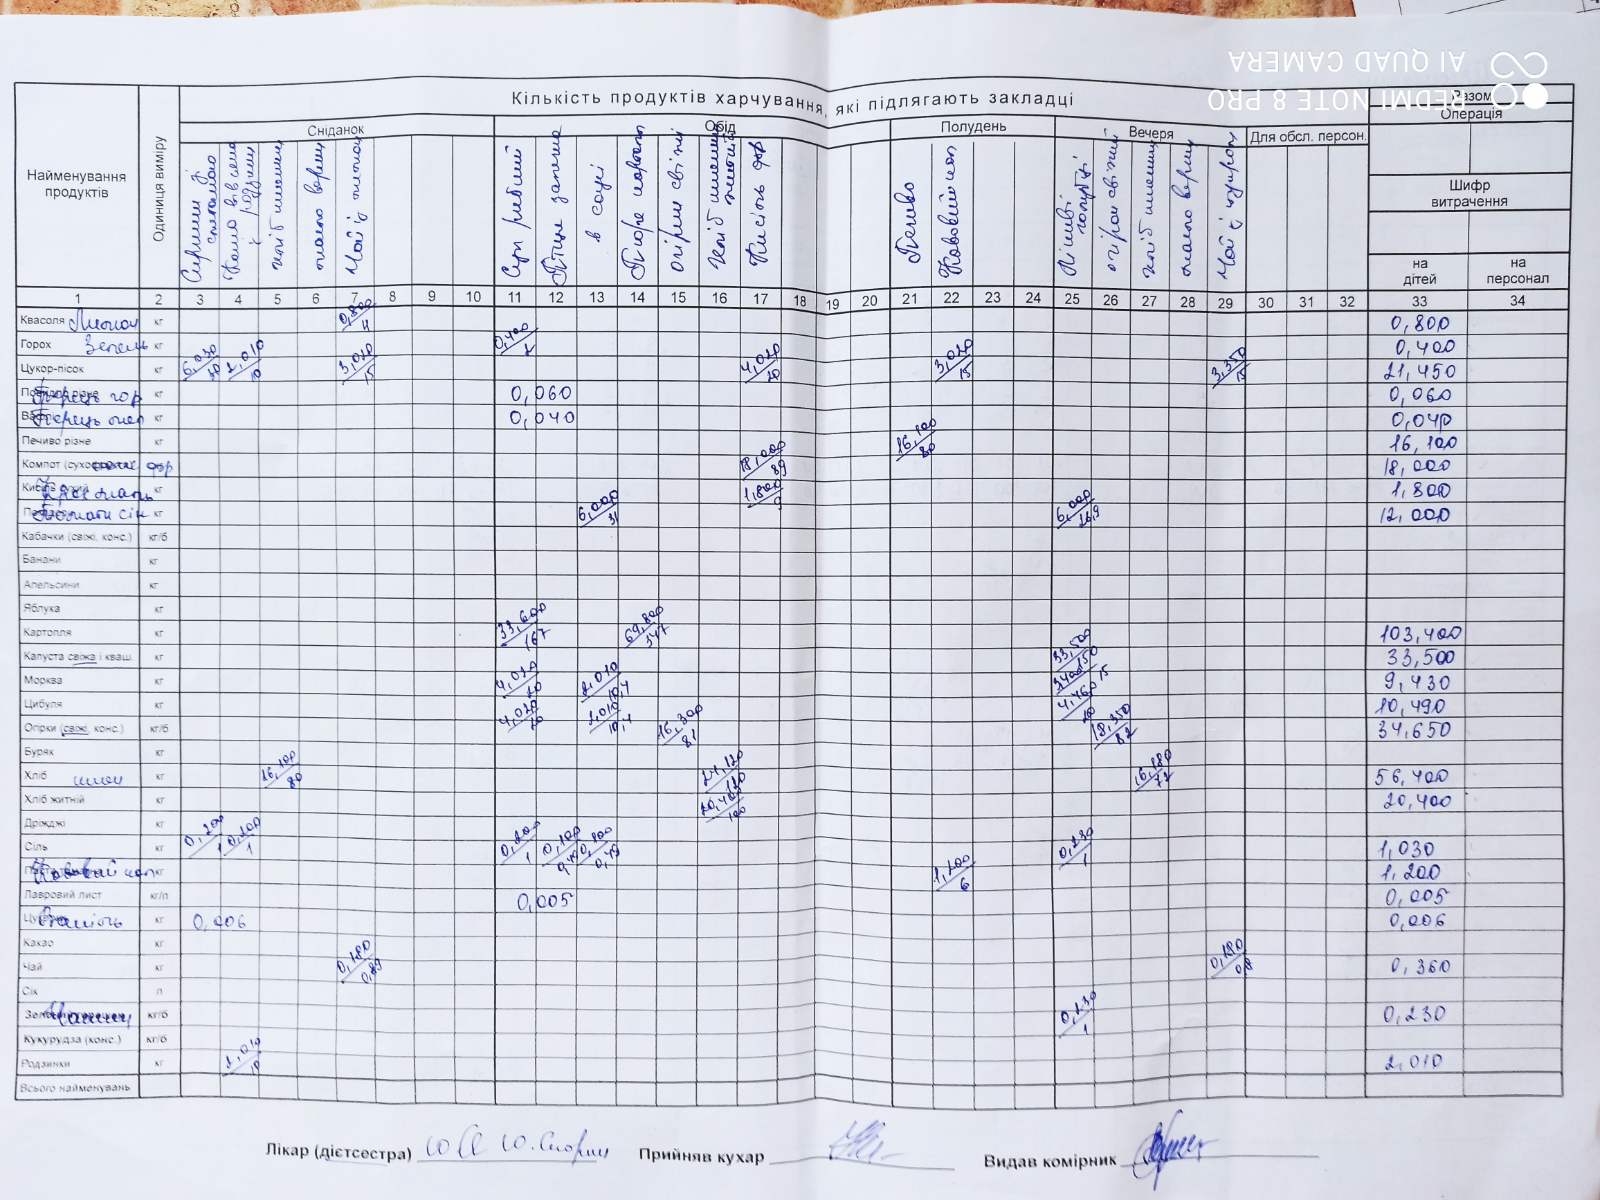 AI QUAD CAMERA
REDMI NOTE 8 PRO
Кількість продуктів харчування, які підлягають закладці
Разом
Операція
Найменування продуктів
Одиниця виміру
Сніданок
Обід
Полудень
Вечеря
Для обсл. персон.
Шифр витрачення
на дітей
на персонал
хліб
масло верш
Чай з лимоном
Суп рибний
Птиця запечена
в соусі
Пюре картоп
огірки свіжі
Хліб
Кисіль
Печиво
Кавовий нап
Ліниві голубці
огірки свіжий
хліб
масло верш
Чай з цукром
1 2 3 4 5 6 7 8 9 10 11 12 13 14 15 16 17 18 19 20 21 22 23 24 25 26 27 28 29 30 31 32 33 34
Квасоля Лимон кг 0,800/4 0,800
Горох Зелень кг 0,400/2 0,400
Цукор-пісок кг 6,030/30 2,010/10 3,020/15 4,020/20 3,020/15 3,350/15 21,450
Перець гор кг 0,060 0,060
Перець мел кг 0,040 0,040
Печиво різне кг 16,100/80 16,100
Компот (сухо кг 18,000/89 18,000
Крохмаль кг 1,800/9 1,800
Томати сік кг 6,000/31 6,000/26,9 12,000
Кабачки (свіжі, конс.) кг/б
Банани кг
Апельсини кг
Яблука кг
Картопля кг 33,600/167 69,800/347 103,400
Капуста свіжа і кваш. кг 33,500/150 33,500
Морква кг 4,020/20 2,010/10,4 3,400/15 9,430
Цибуля кг 4,020/20 2,010/10,4 4,460/20 10,490
Огірки (свіжі, конс.) кг/б 16,300/81 18,350/82 34,650
Буряк кг
Хліб кг 16,100/80 24,120/120 16,180/72 56,400
Хліб житній кг 20,400/100 20,400
Дріжджі кг
Сіль кг 0,200/1 0,200/1 0,200/1 0,100/0,49 0,100/0,49 0,230/1 1,030
Кавовий нап кг 1,200/6 1,200
Лавровий лист кг/п 0,005 0,005
Ваніль кг 0,006 0,006
Какао кг
Чай кг 0,180/0,89 0,180/0,8 0,360
Сік л
кг/б 0,230/1 0,230
Кукурудза (конс.) кг/б
Родзинки кг 2,010/10 2,010
Всього найменувань
Лікар (дієтсестра) Прийняв кухар Видав комірник